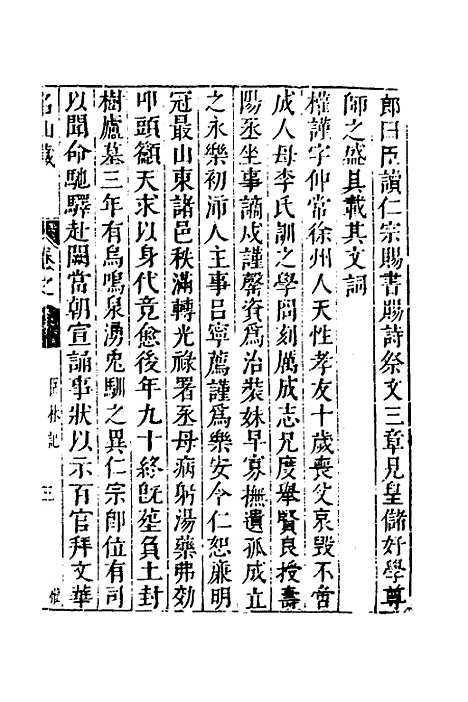 郎曰臣讀仁宗賜書賜詩祭文三章見皇儲好學尊
師之盛具載其文詞
權謹字仲常徐州人天性孝友十歲喪父哀毀不啻
成人母李氏訓之學問刻厲成志兄度舉賢良授壽
陽丞坐事謫戍謹罄資爲治裝妹早寡撫遺孤成立
之永樂初沛人主事呂寧薦謹爲樂安令仁恕廉明
冠最山東諸邑秩滿轉光祿署丞母病躬湯藥弗効
叩頭籲天求以身代竟愈後年九十終旣塟負土封
樹廬墓三年有烏鳴泉湧兎馴之異仁宗卽位有司
以聞命馳驛赴闕當朝宣誦事狀以示百官拜文華
名山藏
卷之
臣林記
三